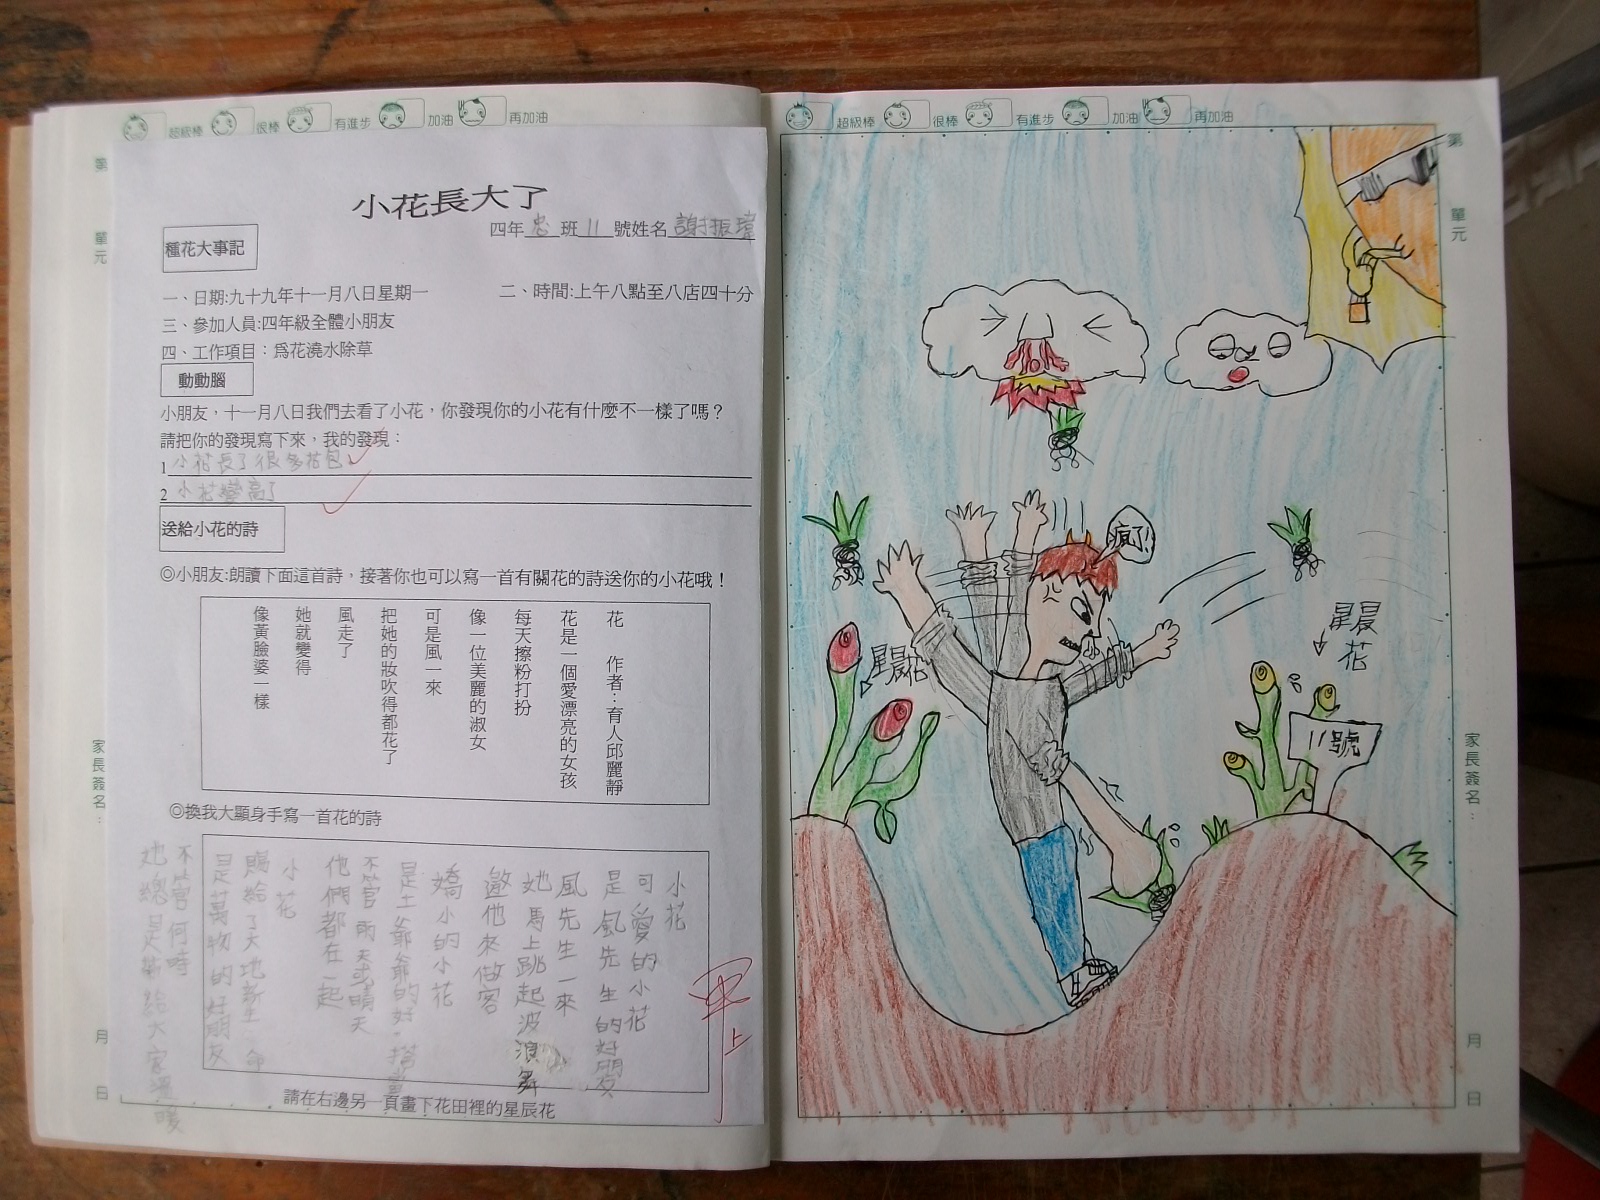 超級棒 很棒 有進步 加油 再加油
第 單元
家長簽名:
月 日
小花長大了
四年忠班11號姓名謝振瑋
種花大事記
一、日期:九十九年十一月八日星期一 二、時間:上午八點至八店四十分
三、參加人員:四年級全體小朋友
四、工作項目：爲花澆水除草
動動腦
小朋友，十一月八日我們去看了小花，你發現你的小花有什麼不一樣了嗎？
請把你的發現寫下來，我的發現：
1 小花長了很多花包
2 小花變高了
送給小花的詩
◎小朋友:朗讀下面這首詩，接著你也可以寫一首有關花的詩送你的小花哦！
花 作者：育人邱麗靜
花是一個愛漂亮的女孩
每天擦粉打扮
像一位美麗的淑女
可是風一來
把她的妝吹得都花了
風走了
她就變得
像黃臉婆一樣
◎換我大顯身手寫一首花的詩
小花
可愛的小花
是風先生的好朋友
風先生一來
她馬上跳起波浪舞
邀他來做客
嬌小的小花
是土爺爺的好
不管雨天或晴天
他們都在一起
小花
賜給了大地新生命
是萬物的好朋友
不管何時
她總是 給大家溫暖
請在右邊另一頁畫下花田裡的星辰花
超級棒 很棒 有進步 加油 再加油
第 單元
家長簽名:
月 日
瘋了!
星晨花
星晨花
11號